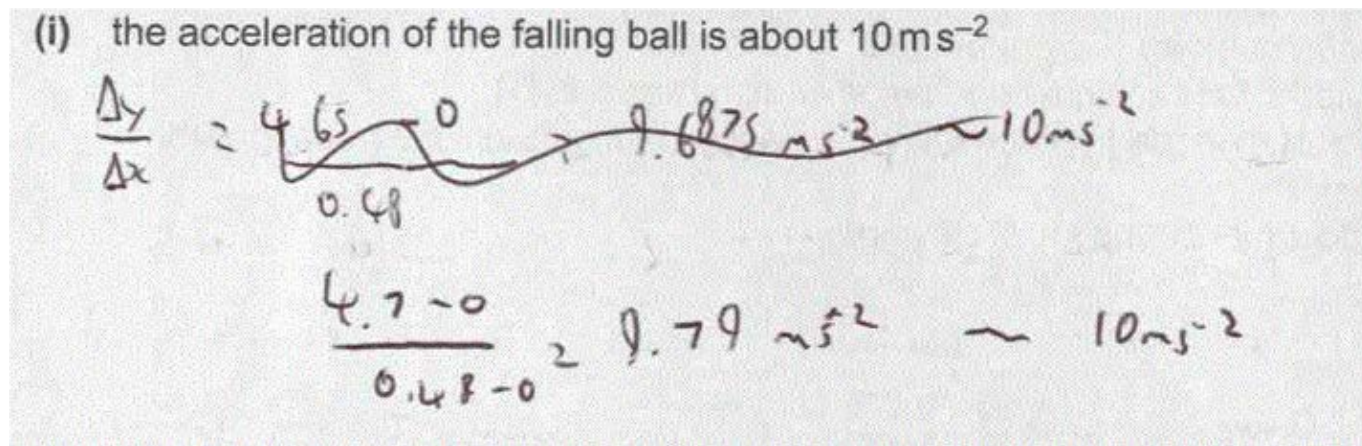 (i) the acceleration of the falling ball is about 10 m s⁻²
Δy/Δx = 4.65 - 0 / 0.48 = 9.6875 ms⁻² ~ 10 ms⁻²
4.7 - 0 / 0.48 - 0 = 9.79 ms⁻² ~ 10 ms⁻²